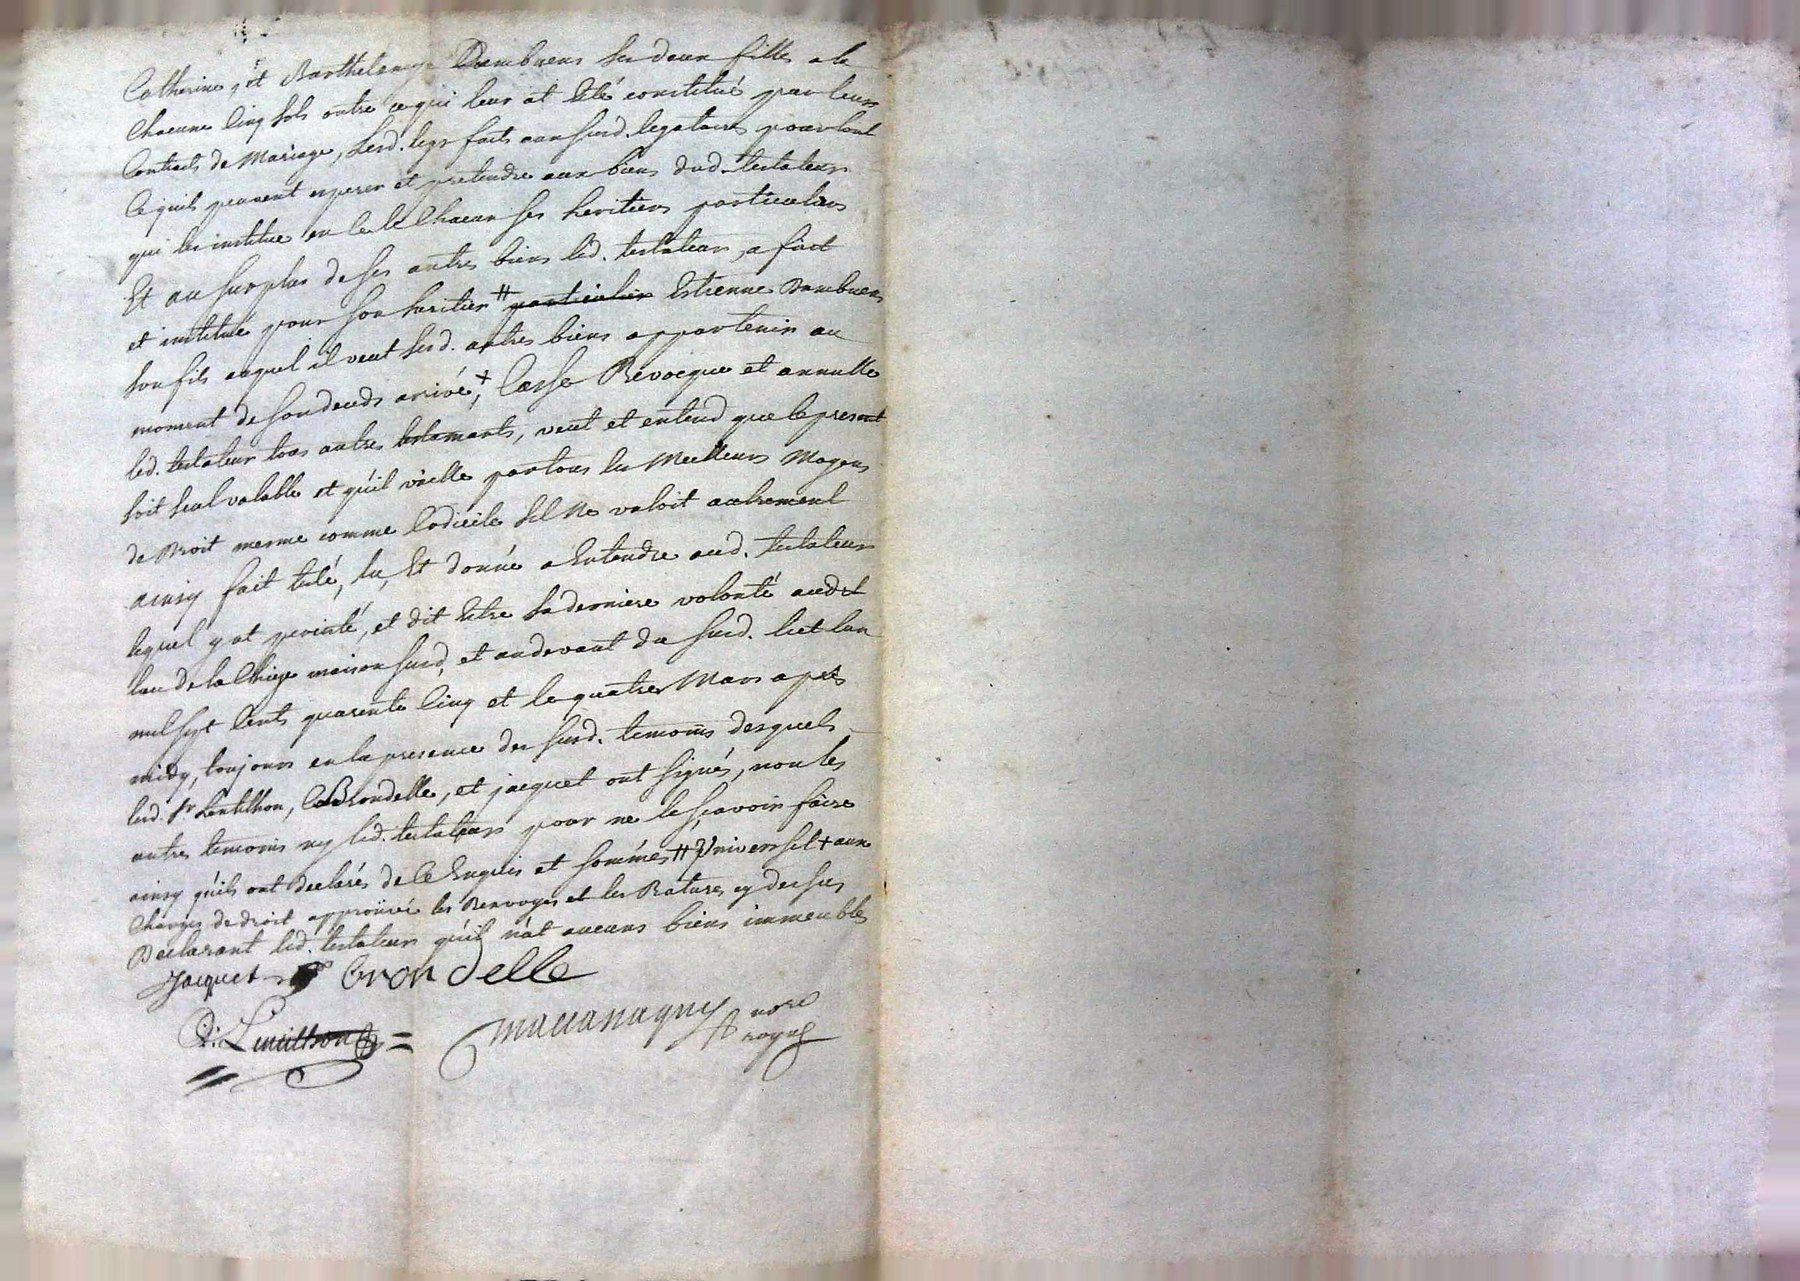 Catherine, et Barthelemye Dambuens ses deux filles a le
Chacune Cinq sols outre ce qui leur at eté constitué par leurs
Contracts de Mariage, Lesd. legs faits aux susd. legataires pour tout
Ce quils peuvent esperer et pretendre aux biens dud. testateur
qui les institue en Ce le Chacun ses heritiers particuliers
Et au surplus de ses autres biens led. testateur, a fait
et institué pour son heritier # particulier Estienne Dambuens
son fils auquel il veut sesd. autres biens appartenir au
moment de son deceds arrivé, + Casse Revocque et annulle
led. testateur tous autres testamants, veut et entend que le present
soit seul valable et quil vaille par tous les Meilleurs Moyens
de Droit mesme comme Codicile sil Ne valoit autrement
ainsy fait testé, lu, Et donné a Entendre aud. testateur
lequel y at percisté, et dit Estre sa derniere volonté audit
lieu de la maison susd, et audevant du susd. lict lan
mil sept Cents quarente Cinq et le quatre Mars apres
midy, toujours en la presence des susd. temoins desquels
lesd. Sr Lentilhon, Crondelle, et jacquet ont signés, non les
autres temoins ny led. testateur pour ne le sçavoir faire
ainsy quils ont declarés de Ce Enquis et sommés # Universsel + aux
Charges de droit approuvé les Renvoyes et les Ratures cy dessus
Declarant led. testateur quil n'at aucuns biens immeubles
Jacquet Crondelle
Lentilhon
nore
royal